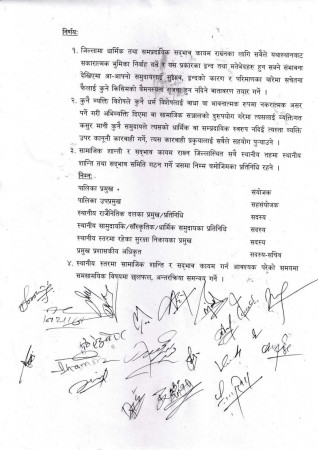 निर्णयः
१. जिल्लामा धार्मिक तथा साम्प्रदायिक सद्भाव कायम राख्नका लागि सबैले यथास्थानबाट
सकारात्मक भूमिका निर्वाह गर्ने र यस प्रकारका द्वन्द्व तथा मतभेदहरु हुन सक्ने संभावना
देखिएमा आ-आफ्नो समुदायलाई बुझाउने, द्वन्द्वको कारण र परिणामका बारेमा सचेतना
फैलाई कुनै किसिमको वैमनस्यता सृजना हुन नदिने वातावरण तयार गर्ने ।
२. कुनै व्यक्ति विशेषले कुनै धर्म विशेषलाई बाधा वा भावनात्मक रुपमा नकारात्मक असर
पर्ने गरी अभिव्यक्ति दिएमा वा सामाजिक सञ्जालको दुरुपयोग गरेमा त्यसलाई व्यक्तिगत
कसुर मानी कुनै समुदायले त्यसको धार्मिक वा साम्प्रदायिक स्वरुप नदिई त्यस्ता व्यक्ति
उपर कानूनी कारवाही गर्ने, त्यस कारवाही प्रकृयालाई सबैले सहयोग पुर्‍याउने ।
३. सामाजिक शान्ती र सद्भाव कायम राख्न जिल्लास्थित सबै स्थानीय तहमा स्थानीय
शान्ति तथा सद्भाव समिति गठन गर्ने जसमा निम्न बमोजिमका प्रतिनिधि रहने ।
निम्नः
पालिका प्रमुख - संयोजक
पालिका उपप्रमुख सहसंयोजक
स्थानीय राजनैतिक दलका प्रमुख/प्रतिनिधि सदस्य
स्थानीय सामुदायिक/सांस्कृतिक/धार्मिक समुदायका प्रतिनिधि सदस्य
स्थानीय स्तरमा रहेका सुरक्षा निकायका प्रमुख सदस्य
प्रमुख प्रशासकीय अधिकृत सदस्य-सचिव
४. स्थानीय स्तरमा सामाजिक शान्ति र सद्भाव कायम गर्न आवश्यक परेको समयमा
समसामयिक विषयमा छलफल, अन्तरक्रिया समन्वय गर्ने ।